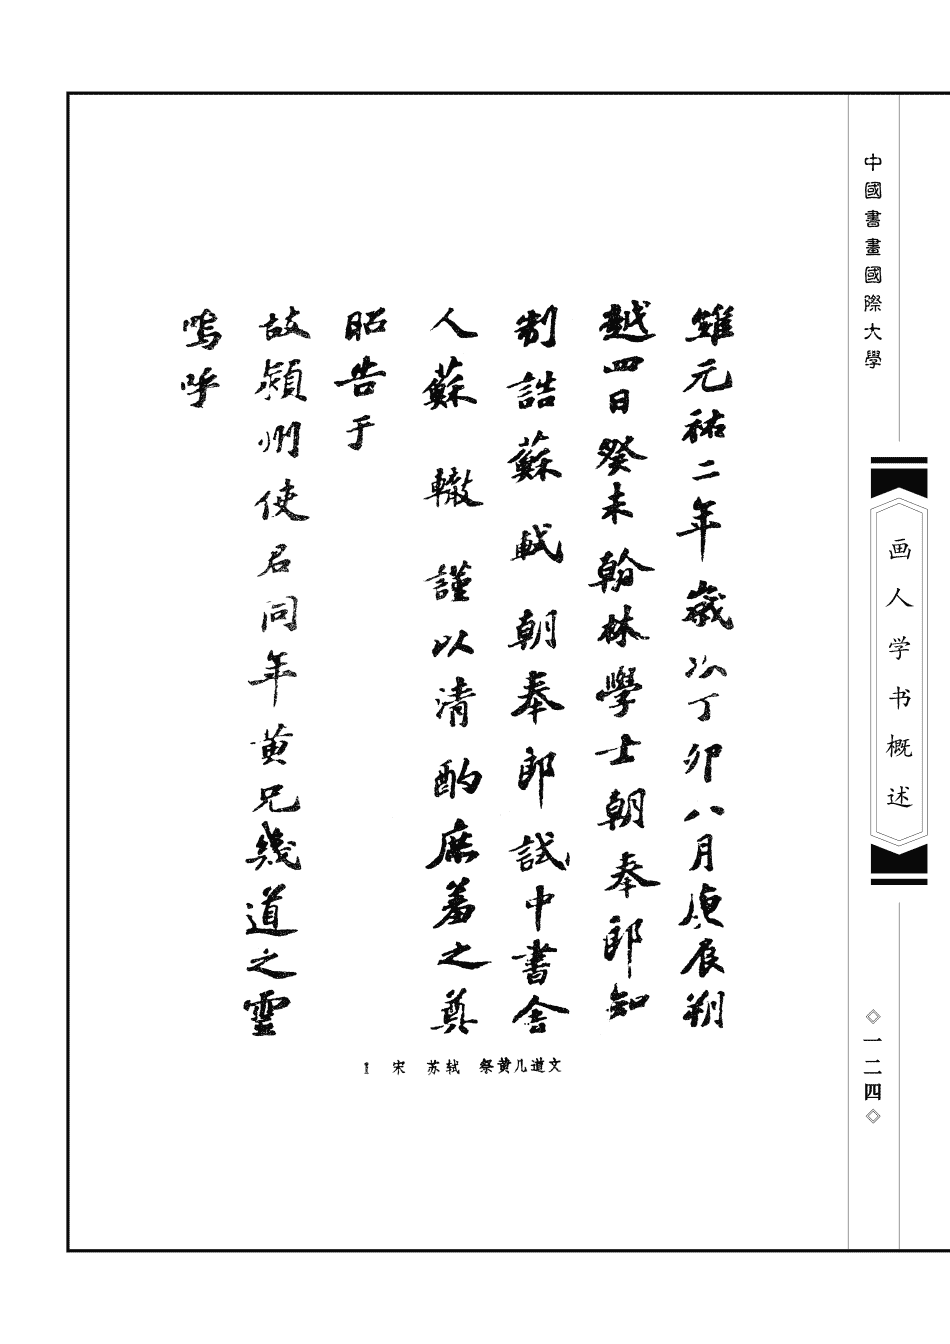 中國書畫國際大學
画人学书概述
◇一二四◇
維元祐二年歲次丁卯八月庚辰朔
越四日癸未翰林學士朝奉郎知
制誥蘇軾朝奉郎試中書舍
人蘇轍謹以清酌庶羞之奠
昭告于
故潁州使君同年黄兄幾道之靈
嗚呼
1 宋 苏轼 祭黄几道文